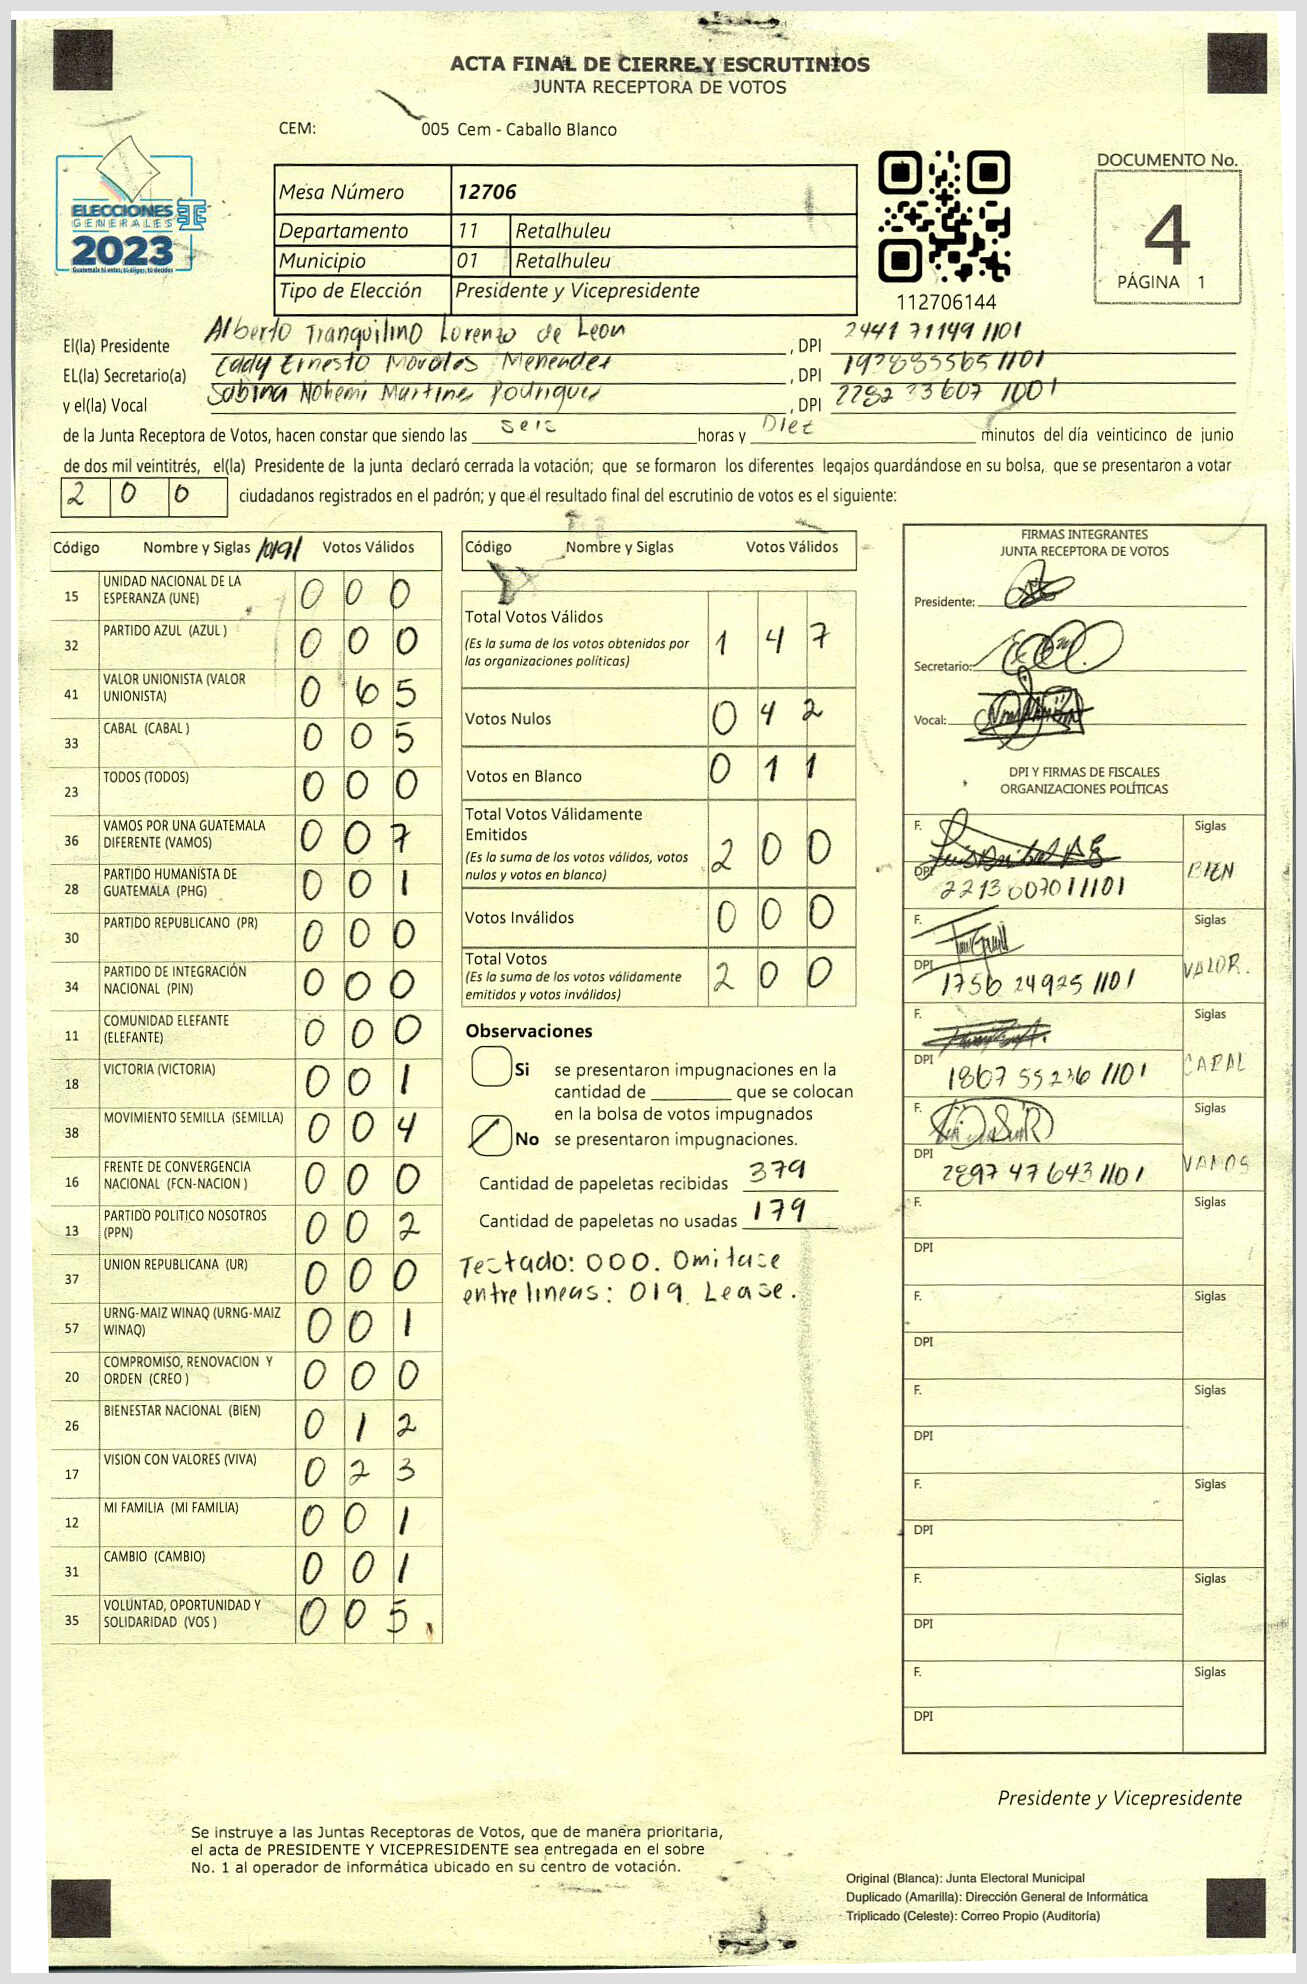 ACTA FINAL DE CIERRE Y ESCRUTINIOS
JUNTA RECEPTORA DE VOTOS
CEM: 005 Cem - Caballo Blanco
ELECCIONES
GENERALES
2023
Mesa Número 12706
Departamento 11 Retalhuleu
Municipio 01 Retalhuleu
Tipo de Elección Presidente y Vicepresidente
112706144
DOCUMENTO No.
4
PÁGINA 1
El(la) Presidente Alberto Tranquilino Lorenzo de Leon, DPI 2441 71149 1101
EL(la) Secretario(a) Eddy Ernesto Morales Menendez, DPI
y el(la) Vocal Sabina Nohemi Martinez Rodriguez, DPI 2282 33607 1001
de la Junta Receptora de Votos, hacen constar que siendo las seis horas y Diez minutos del día veinticinco de junio
de dos mil veintitrés, el(la) Presidente de la junta declaró cerrada la votación; que se formaron los diferentes legajos guardándose en su bolsa, que se presentaron a votar
200 ciudadanos registrados en el padrón; y que el resultado final del escrutinio de votos es el siguiente:
Código Nombre y Siglas /019/ Votos Válidos
15 UNIDAD NACIONAL DE LA ESPERANZA (UNE) 0 0 0
32 PARTIDO AZUL (AZUL ) 0 0 0
41 VALOR UNIONISTA (VALOR UNIONISTA) 0 6 5
33 CABAL (CABAL ) 0 0 5
23 TODOS (TODOS) 0 0 0
36 VAMOS POR UNA GUATEMALA DIFERENTE (VAMOS) 0 0 7
28 PARTIDO HUMANISTA DE GUATEMALA (PHG) 0 0 1
30 PARTIDO REPUBLICANO (PR) 0 0 0
34 PARTIDO DE INTEGRACIÓN NACIONAL (PIN) 0 0 0
11 COMUNIDAD ELEFANTE (ELEFANTE) 0 0 0
18 VICTORIA (VICTORIA) 0 0 1
38 MOVIMIENTO SEMILLA (SEMILLA) 0 0 4
16 FRENTE DE CONVERGENCIA NACIONAL (FCN-NACION ) 0 0 0
13 PARTIDO POLITICO NOSOTROS (PPN) 0 0 2
37 UNION REPUBLICANA (UR) 0 0 0
57 URNG-MAIZ WINAQ (URNG-MAIZ WINAQ) 0 0 1
20 COMPROMISO, RENOVACION Y ORDEN (CREO ) 0 0 0
26 BIENESTAR NACIONAL (BIEN) 0 1 2
17 VISION CON VALORES (VIVA) 0 2 3
12 MI FAMILIA (MI FAMILIA) 0 0 1
31 CAMBIO (CAMBIO) 0 0 1
35 VOLUNTAD, OPORTUNIDAD Y SOLIDARIDAD (VOS ) 0 0 5
Código Nombre y Siglas Votos Válidos
Total Votos Válidos 1 4 7
(Es la suma de los votos obtenidos por
las organizaciones políticas)
Votos Nulos 0 4 2
Votos en Blanco 0 1 1
Total Votos Válidamente
Emitidos 2 0 0
(Es la suma de los votos válidos, votos
nulos y votos en blanco)
Votos Inválidos 0 0 0
Total Votos 2 0 0
(Es la suma de los votos válidamente
emitidos y votos inválidos)
Observaciones
Si se presentaron impugnaciones en la
cantidad de ________ que se colocan
en la bolsa de votos impugnados
No se presentaron impugnaciones.
Cantidad de papeletas recibidas 379
Cantidad de papeletas no usadas 179
Testado: 000. Omitase
entre lineas: 019. Lease.
FIRMAS INTEGRANTES
JUNTA RECEPTORA DE VOTOS
Presidente:
Secretario:
Vocal:
DPI Y FIRMAS DE FISCALES
ORGANIZACIONES POLÍTICAS
F. Siglas
DPI 2213 60701 1101 BIEN
F. Siglas
DPI 1756 24925 1101 VALOR.
F. Siglas
DPI 1867 55236 1101 CABAL
F. Siglas
DPI 2897 47643 1101 VAMOS
F. Siglas
DPI
F. Siglas
DPI
F. Siglas
DPI
F. Siglas
DPI
F. Siglas
DPI
F. Siglas
DPI
Presidente y Vicepresidente
Se instruye a las Juntas Receptoras de Votos, que de manera prioritaria,
el acta de PRESIDENTE Y VICEPRESIDENTE sea entregada en el sobre
No. 1 al operador de informática ubicado en su centro de votación.
Original (Blanca): Junta Electoral Municipal
Duplicado (Amarilla): Dirección General de Informática
Triplicado (Celeste): Correo Propio (Auditoría)